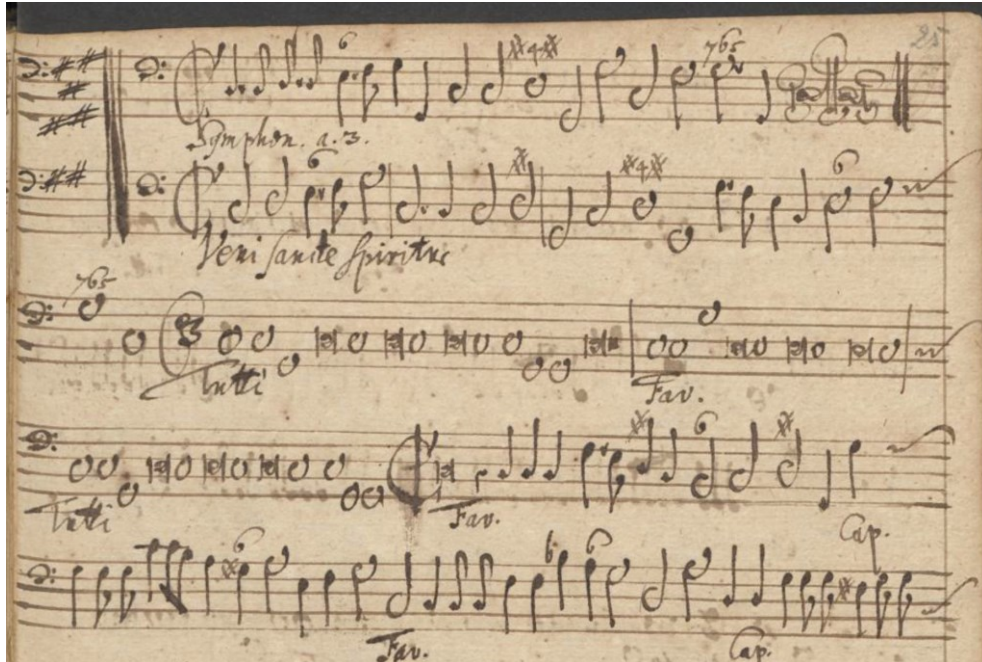 25
Symphon. a. 3.
Veni sancte spiritus
Tutti Fav.
Tutti Fav. Cap.
Fav. Cap.